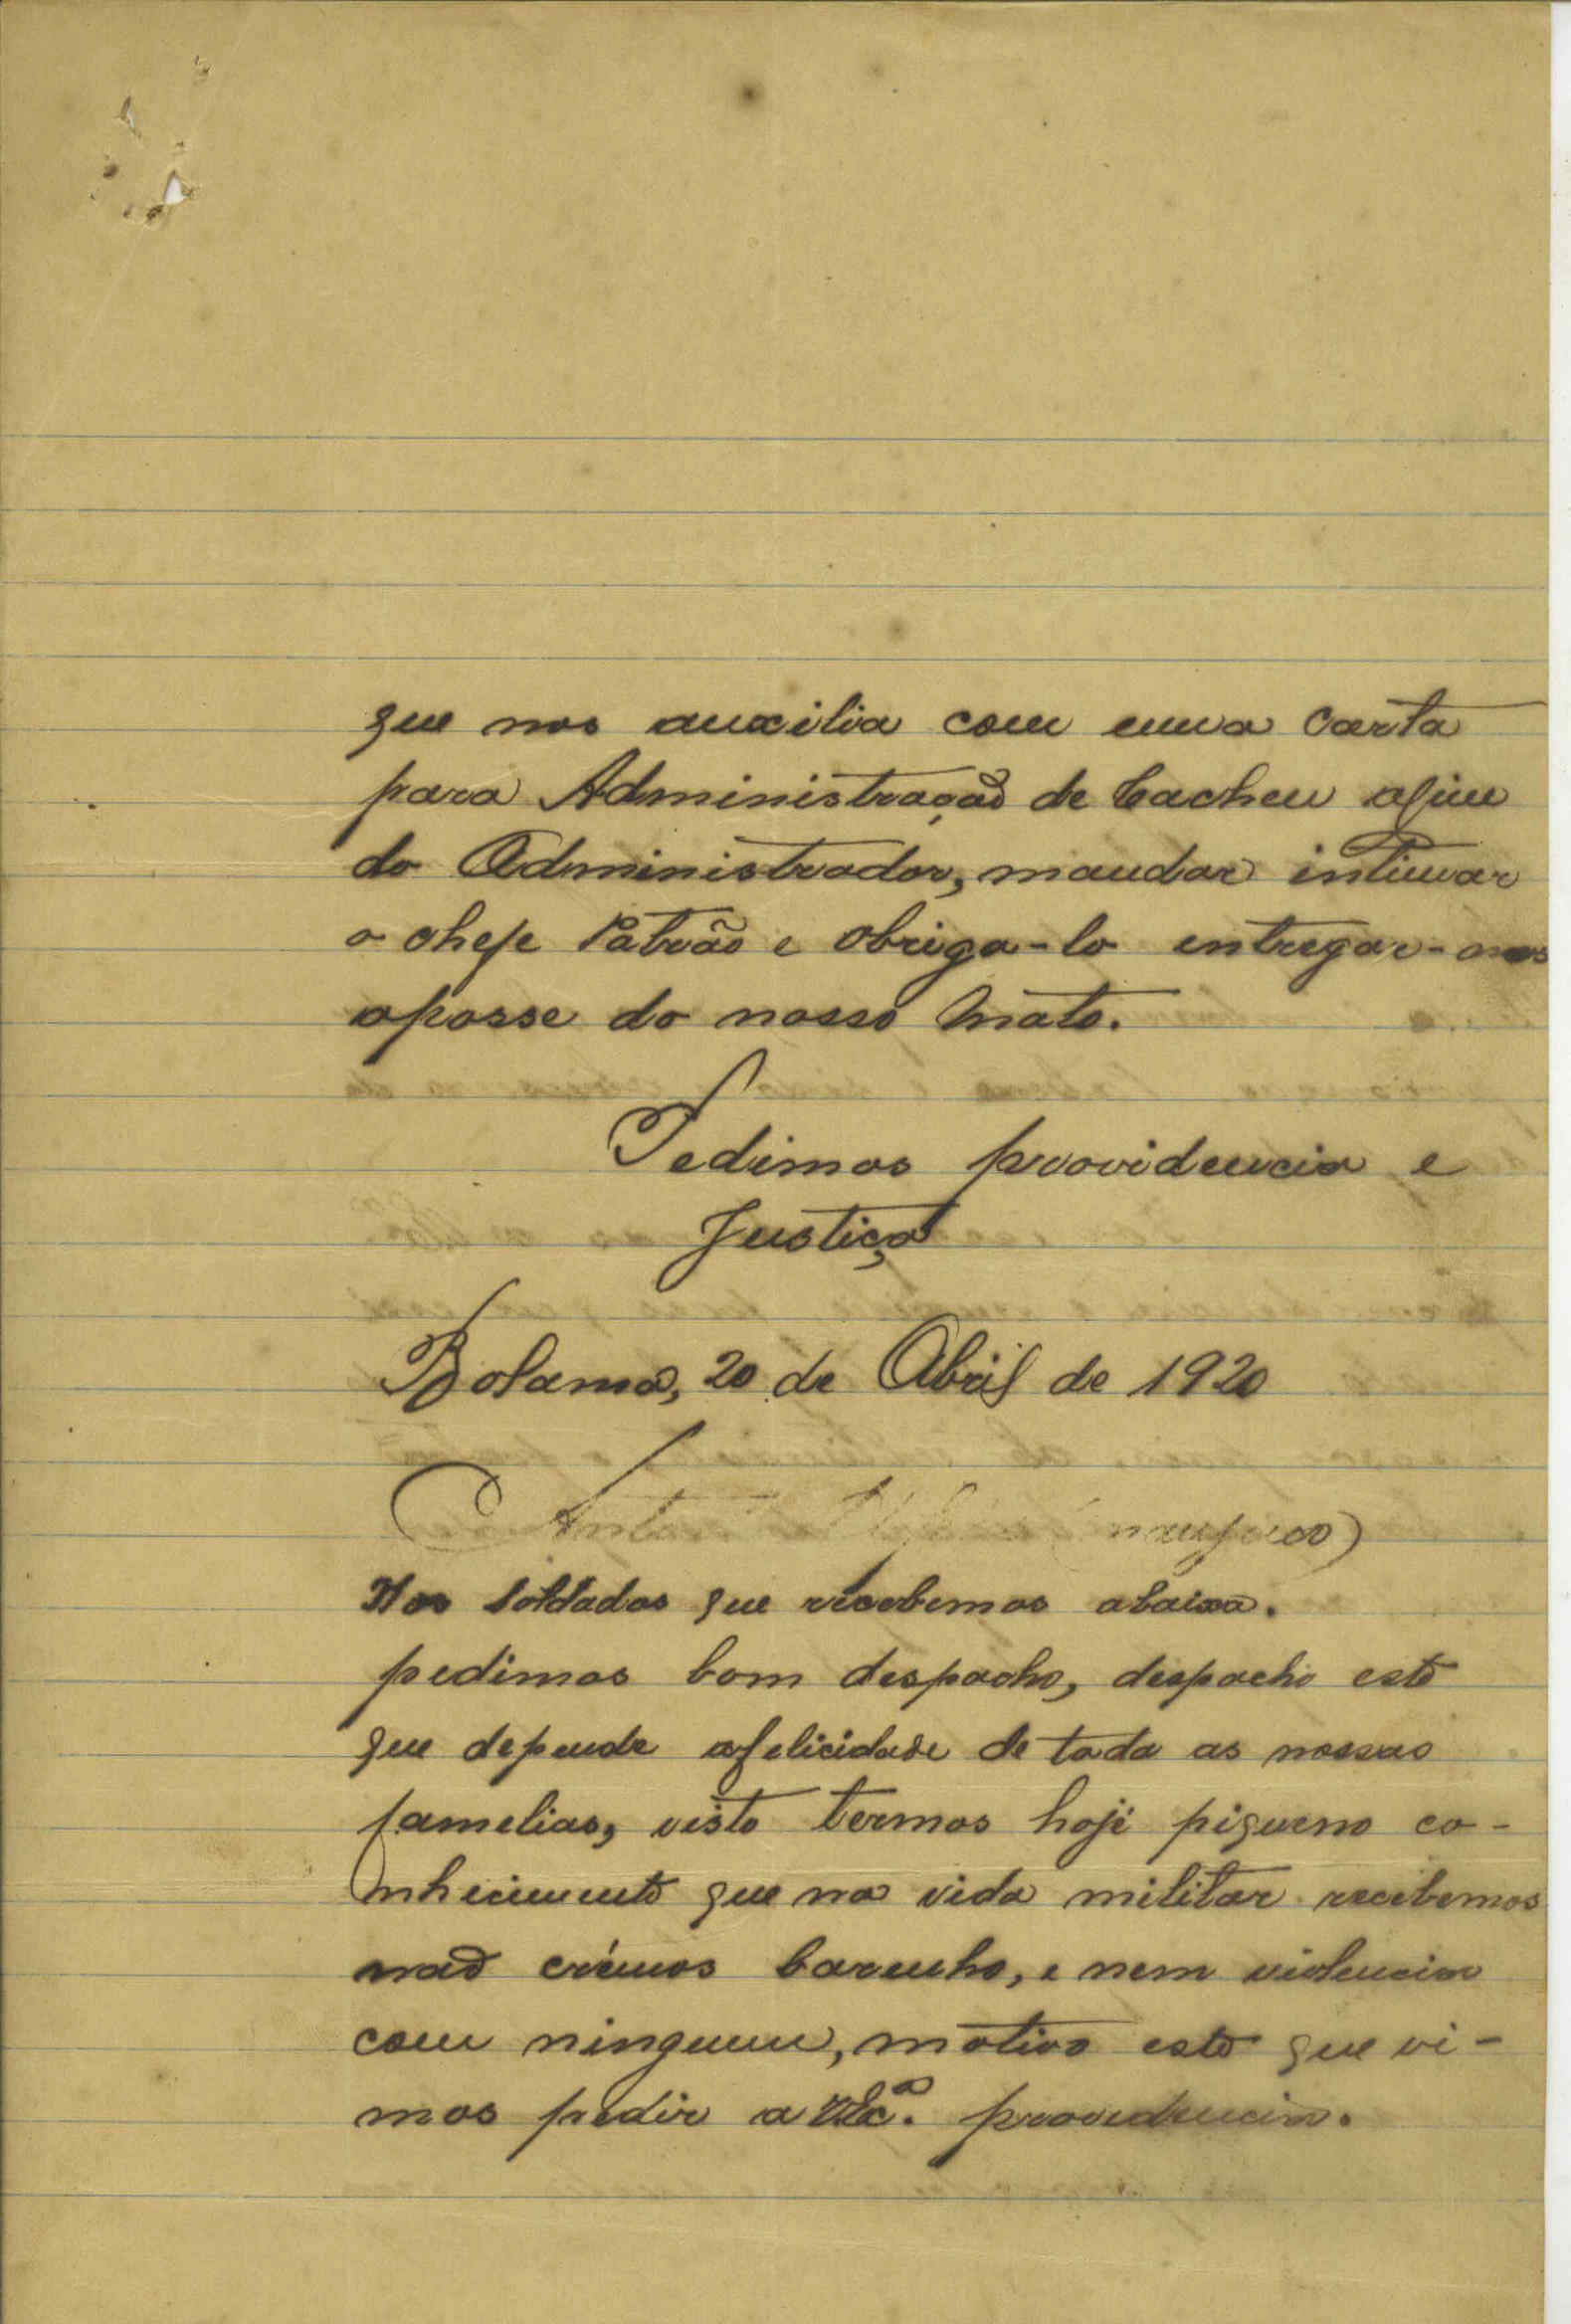 que nos auxilia com uma Carta
para Administração de Cacheu afim
do Administrador, mandar intimar
o chefe Patrão e obriga-lo entregar-nos
aposse do nosso mato.
Pedimos providencia e
Justiça
Bolama, 20 de Abril de 1920
Nos Soldados que recebemos abaixa.
pedimos bom despacho, despacho esto
que depende afelicidade de toda as nossas
famelias, visto termos hoji piqueno co-
nhecimento que na vida militar recebemos
não crémos barulho, e nem violencia
com ninguem, motivo esto que vi-
mos pedir a VExª. providencia.